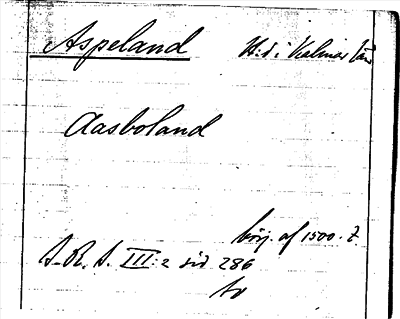 Aspeland H:d i Kalmar län
Aasboland
börj. af 1500-t.
S.R.S. III:2 sid 286